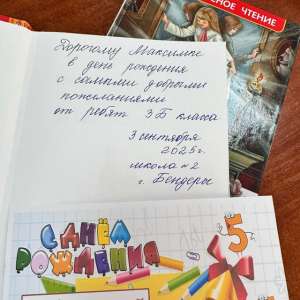 СНОЕ ЧТЕНИЕ
Дорогому Максимке
в день рождения
с самыми добрыми
пожеланиями
от ребят 3Б класса
3 сентября
2025г.
школа №2
г. Бендеры
С ДНЁМ
РОЖДЕНИЯ
5